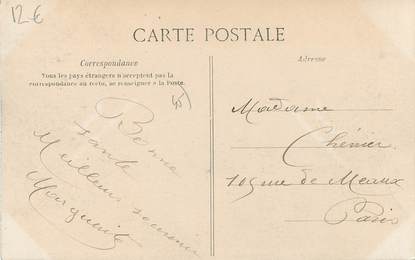 12 €
CARTE POSTALE
Correspondance
Tous les pays étrangers n'acceptent pas la
correspondance au recto, se renseigner à la Poste.
Adresse
Bonne
santé
Meilleur souvenir
Marguerite
Madame
Chénier
105 rue de Meaux
Paris